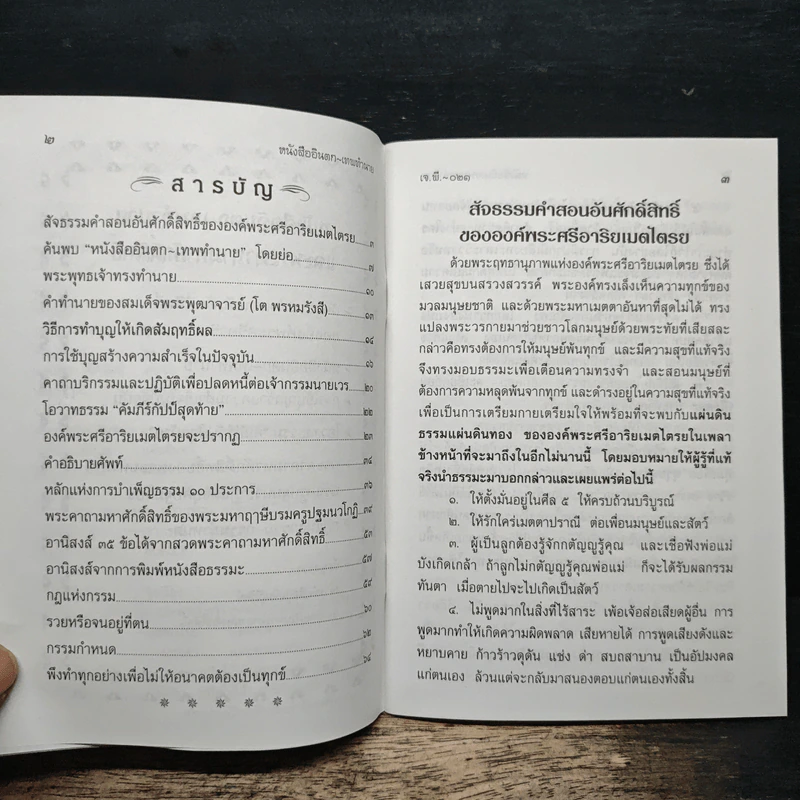 ๒
หนังสืออินตก~เทพทำนาย
สารบัญ
สัจธรรมคำสอนอันศักดิ์สิทธิ์ขององค์พระศรีอาริยเมตไตรย ๓
ค้นพบ “หนังสืออินตก~เทพทำนาย” โดยย่อ ๗
พระพุทธเจ้าทรงทำนาย ๑๐
คำทำนายของสมเด็จพระพุฒาจารย์ (โต พรหมรังสี) ๑๓
วิธีการทำบุญให้เกิดสัมฤทธิ์ผล ๑๔
การใช้บุญสร้างความสำเร็จในปัจจุบัน ๑๖
คาถาบริกรรมและปฏิบัติเพื่อปลดหนี้ต่อเจ้ากรรมนายเวร ๒๐
โอวาทธรรม “คัมภีร์กัปป์สุดท้าย” ๒๒
องค์พระศรีอาริยเมตไตรยจะปรากฏ ๒๓
คำอธิบายศัพท์ ๓๔
หลักแห่งการบำเพ็ญธรรม ๑๐ ประการ ๓๖
พระคาถามหาศักดิ์สิทธิ์ของพระมหาฤาษีบรมครูปฐมนวโกฏิ ๓๙
อานิสงส์ ๓๕ ข้อได้จากสวดพระคาถามหาศักดิ์สิทธิ์ ๕๓
อานิสงส์จากการพิมพ์หนังสือธรรมะ ๕๗
กฎแห่งกรรม ๕๙
รวยหรือจนอยู่ที่ตน ๖๐
กรรมกำหนด ๖๒
พึงทำทุกอย่างเพื่อไม่ให้อนาคตต้องเป็นทุกข์ ๖๔
จ.พี.~๐๒๓
๓
สัจธรรมคำสอนอันศักดิ์สิทธิ์
ขององค์พระศรีอาริยเมตไตรย
ด้วยพระฤทธานุภาพแห่งองค์พระศรีอาริยเมตไตรย ซึ่งได้
เสวยสุขบนสรวงสวรรค์ พระองค์ทรงเล็งเห็นความทุกข์ของ
มวลมนุษยชาติ และด้วยพระมหาเมตตาอันหาที่สุดไม่ได้ ทรง
แปลงพระวรกายมาช่วยชาวโลกมนุษย์ด้วยพระทัยที่เสียสละ
กล่าวคือทรงต้องการให้มนุษย์พ้นทุกข์ และมีความสุขที่แท้จริง
จึงทรงมอบธรรมะเพื่อเตือนความทรงจำ และสอนมนุษย์ที่
ต้องการความหลุดพ้นจากทุกข์ และดำรงอยู่ในความสุขที่แท้จริง
เพื่อเป็นการเตรียมกายเตรียมใจให้พร้อมที่จะพบกับแผ่นดิน
ธรรมแผ่นดินทอง ขององค์พระศรีอาริยเมตไตรยในเพลา
ข้างหน้าที่จะมาถึงในอีกไม่นานนี้ โดยมอบหมายให้ผู้รู้ที่แท้
จริงนำธรรมะมาบอกกล่าวและเผยแพร่ต่อไปนี้
๑. ให้ตั้งมั่นอยู่ในศีล ๕ ให้ครบถ้วนบริบูรณ์
๒. ให้รักใคร่เมตตาปราณี ต่อเพื่อนมนุษย์และสัตว์
๓. ผู้เป็นลูกต้องรู้จักกตัญญูรู้คุณ และเชื่อฟังพ่อแม่
บังเกิดเกล้า ถ้าลูกไม่กตัญญูรู้คุณพ่อแม่ ก็จะได้รับผลกรรม
ทันตา เมื่อตายไปจะไปเกิดเป็นสัตว์
๔. ไม่พูดมากในสิ่งที่ไร้สาระ เพ้อเจ้อส่อเสียดผู้อื่น การ
พูดมากทำให้เกิดความผิดพลาด เสียหายได้ การพูดเสียงดังและ
หยาบคาย ก้าวร้าวดุดัน แช่ง ด่า สบถสาบาน เป็นอัปมงคล
แก่ตนเอง ล้วนแต่จะกลับมาสนองตอบแก่ตนเองทั้งสิ้น